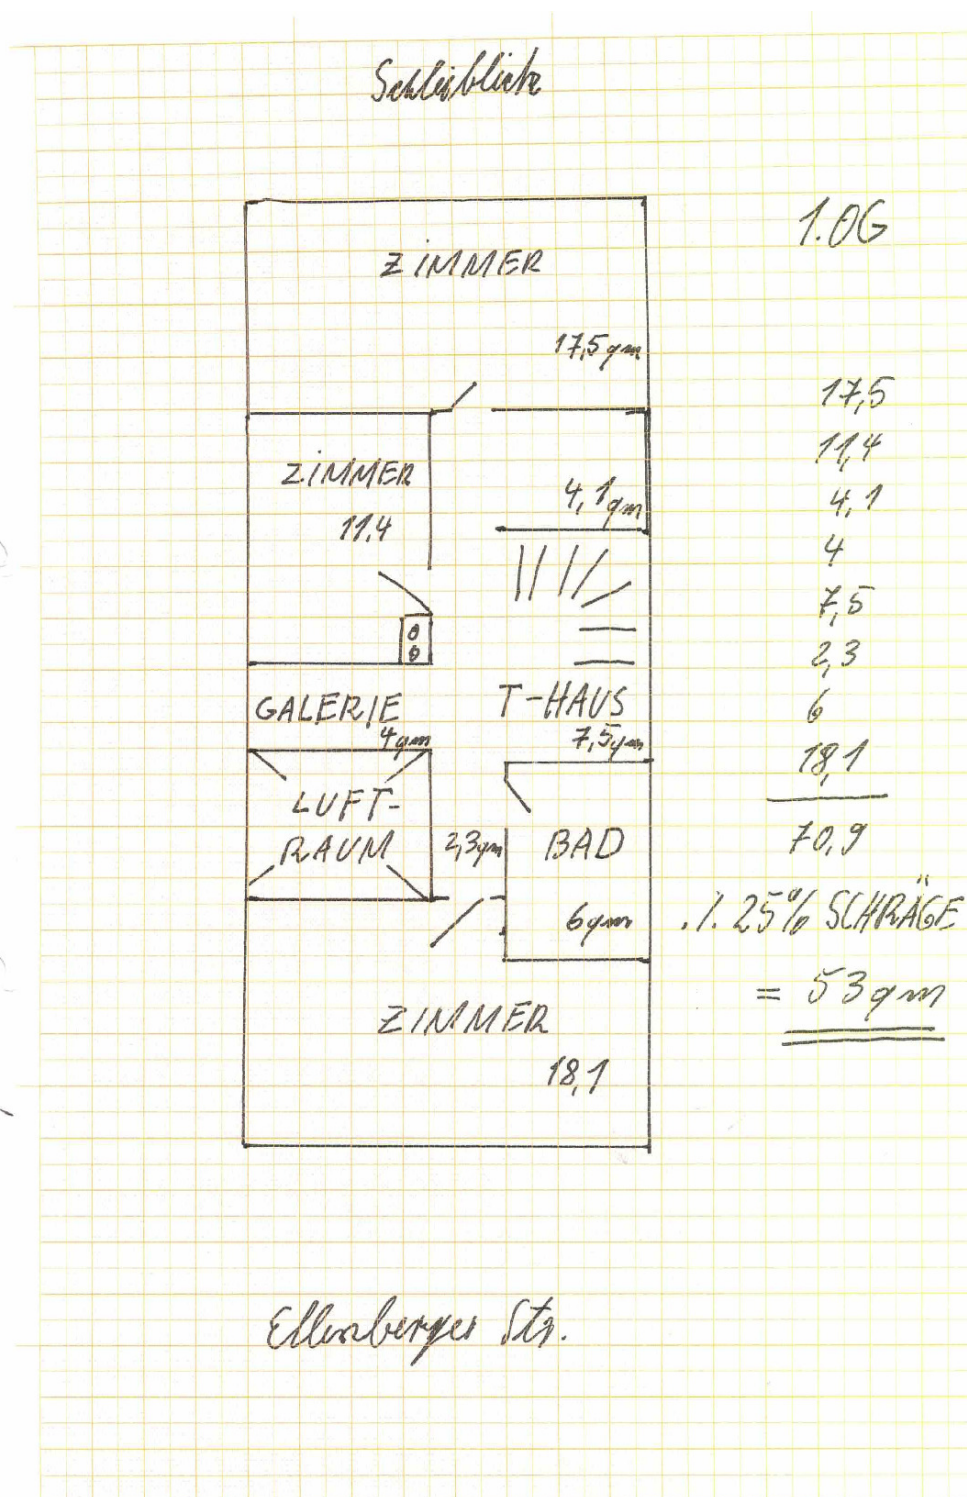 Schleiblick
1.OG
ZIMMER
17,5qm
ZIMMER
11,4
4,1qm
GALERIE
4qm
T-HAUS
7,5qm
LUFT-
RAUM
2,3qm
BAD
6qm
ZIMMER
18,1
17,5
11,4
4,1
4
7,5
2,3
6
18,1
70,9
./. 25% SCHRÄGE
= 53qm
Ellenberger Str.